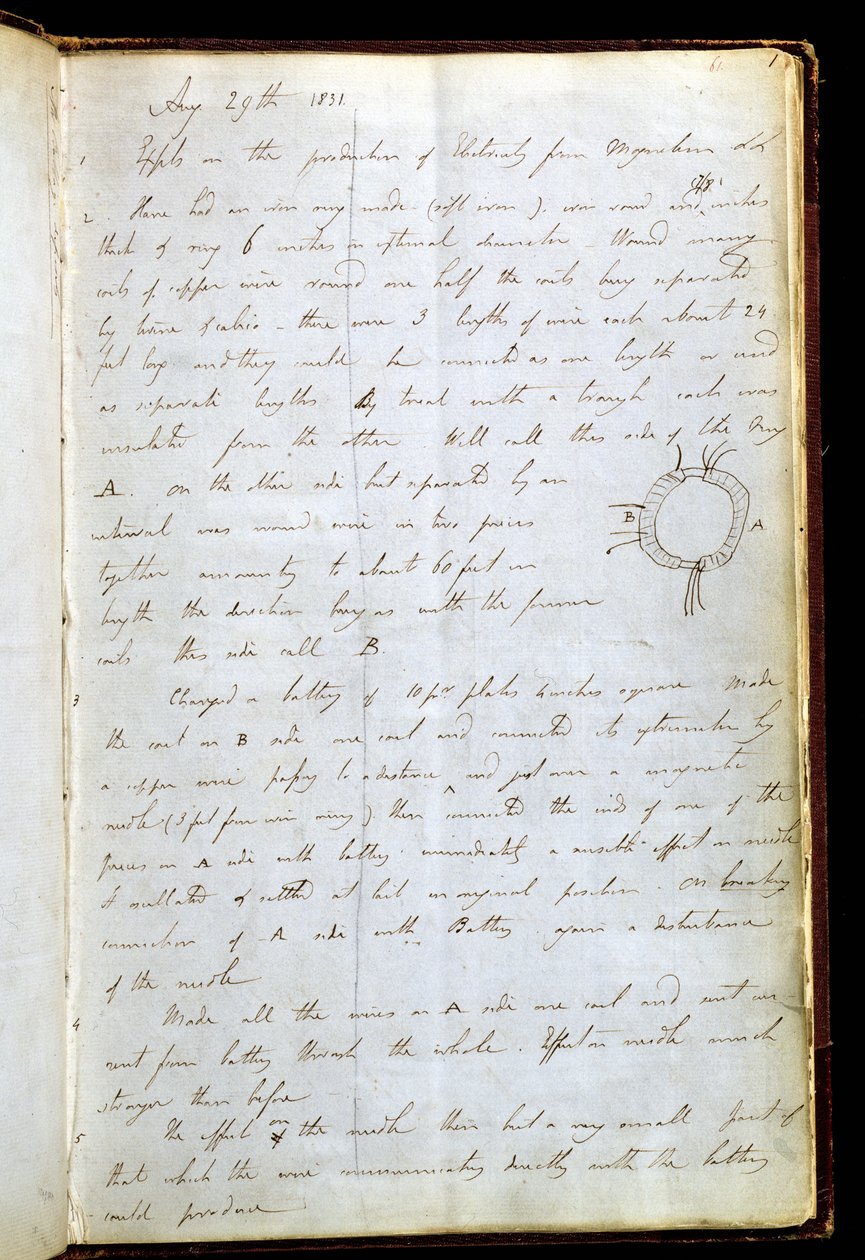 61. 1
Aug 29th 1831.
1 Expts on the production of Electricity from Magnetism &c &c
2. Have had an iron ring made (soft iron), iron round and 7/8 inches
thick & ring 6 inches in external diameter - Wound many
coils of copper wire round one half the coils being separated
by twine & calico - there were 3 lengths of wire each about 24
feet long and they could be connected as one length or used
as separate lengths By trial with a trough each was
insulated from the other Will call this side of the ring
A. On the other side but separated by an
interval was wound wire in two pieces
together amounting to about 60 feet in
length the direction being as with the former
coils this side call B.
B A
3 Charged a battery of 10 pr. plates 4 inches square Made
the coil on B side one coil and connected its extremities by
a copper wire passing to a distance and just over a magnetic
needle (3 feet from wire ring). then connected the ends of one of the
pieces on A side with battery immediately a sensible effect on needle
It oscillated & settled at last in original position. On breaking
connection of A side with Battery again a disturbance
of the needle
4 Made all the wires on A side one coil and sent cur-
rent from battery through the whole. Effect on needle much
stronger than before
5 The effect on the needle then but a very small part of
that which the wire communicating directly with the battery
could produce